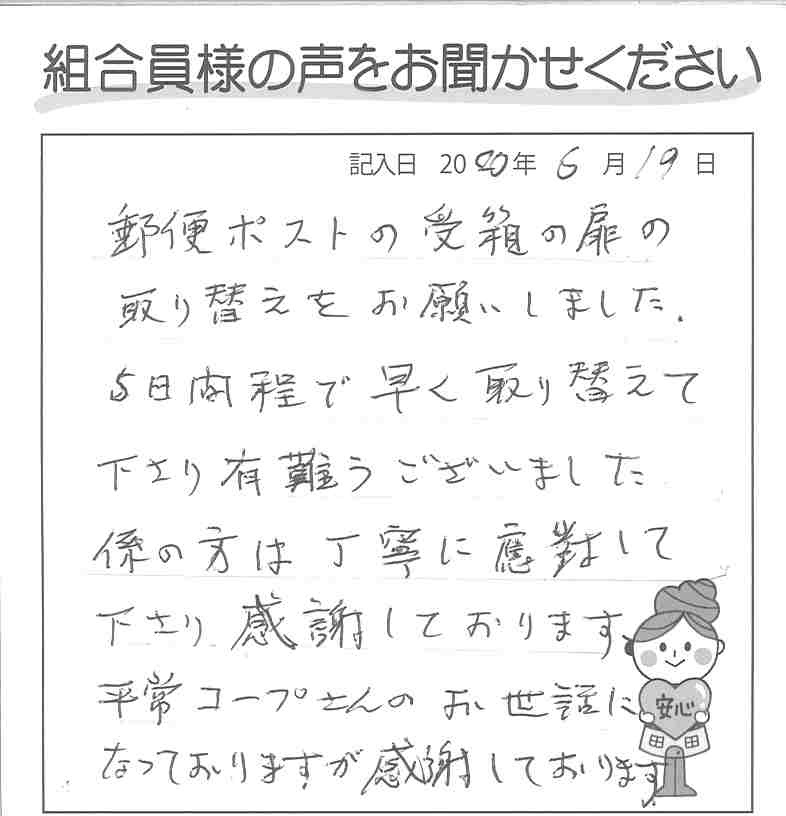 組合員様の声をお聞かせください
記入日 2020年 6月19日
郵便ポストの受箱の扉の
取り替えをお願いしました.
5日間程で早く取り替えて
下さり有難うございました
係の方は丁寧に應對して
下さり感謝しております
平常コープさんのお世話に
なっておりますが感謝しております
安心